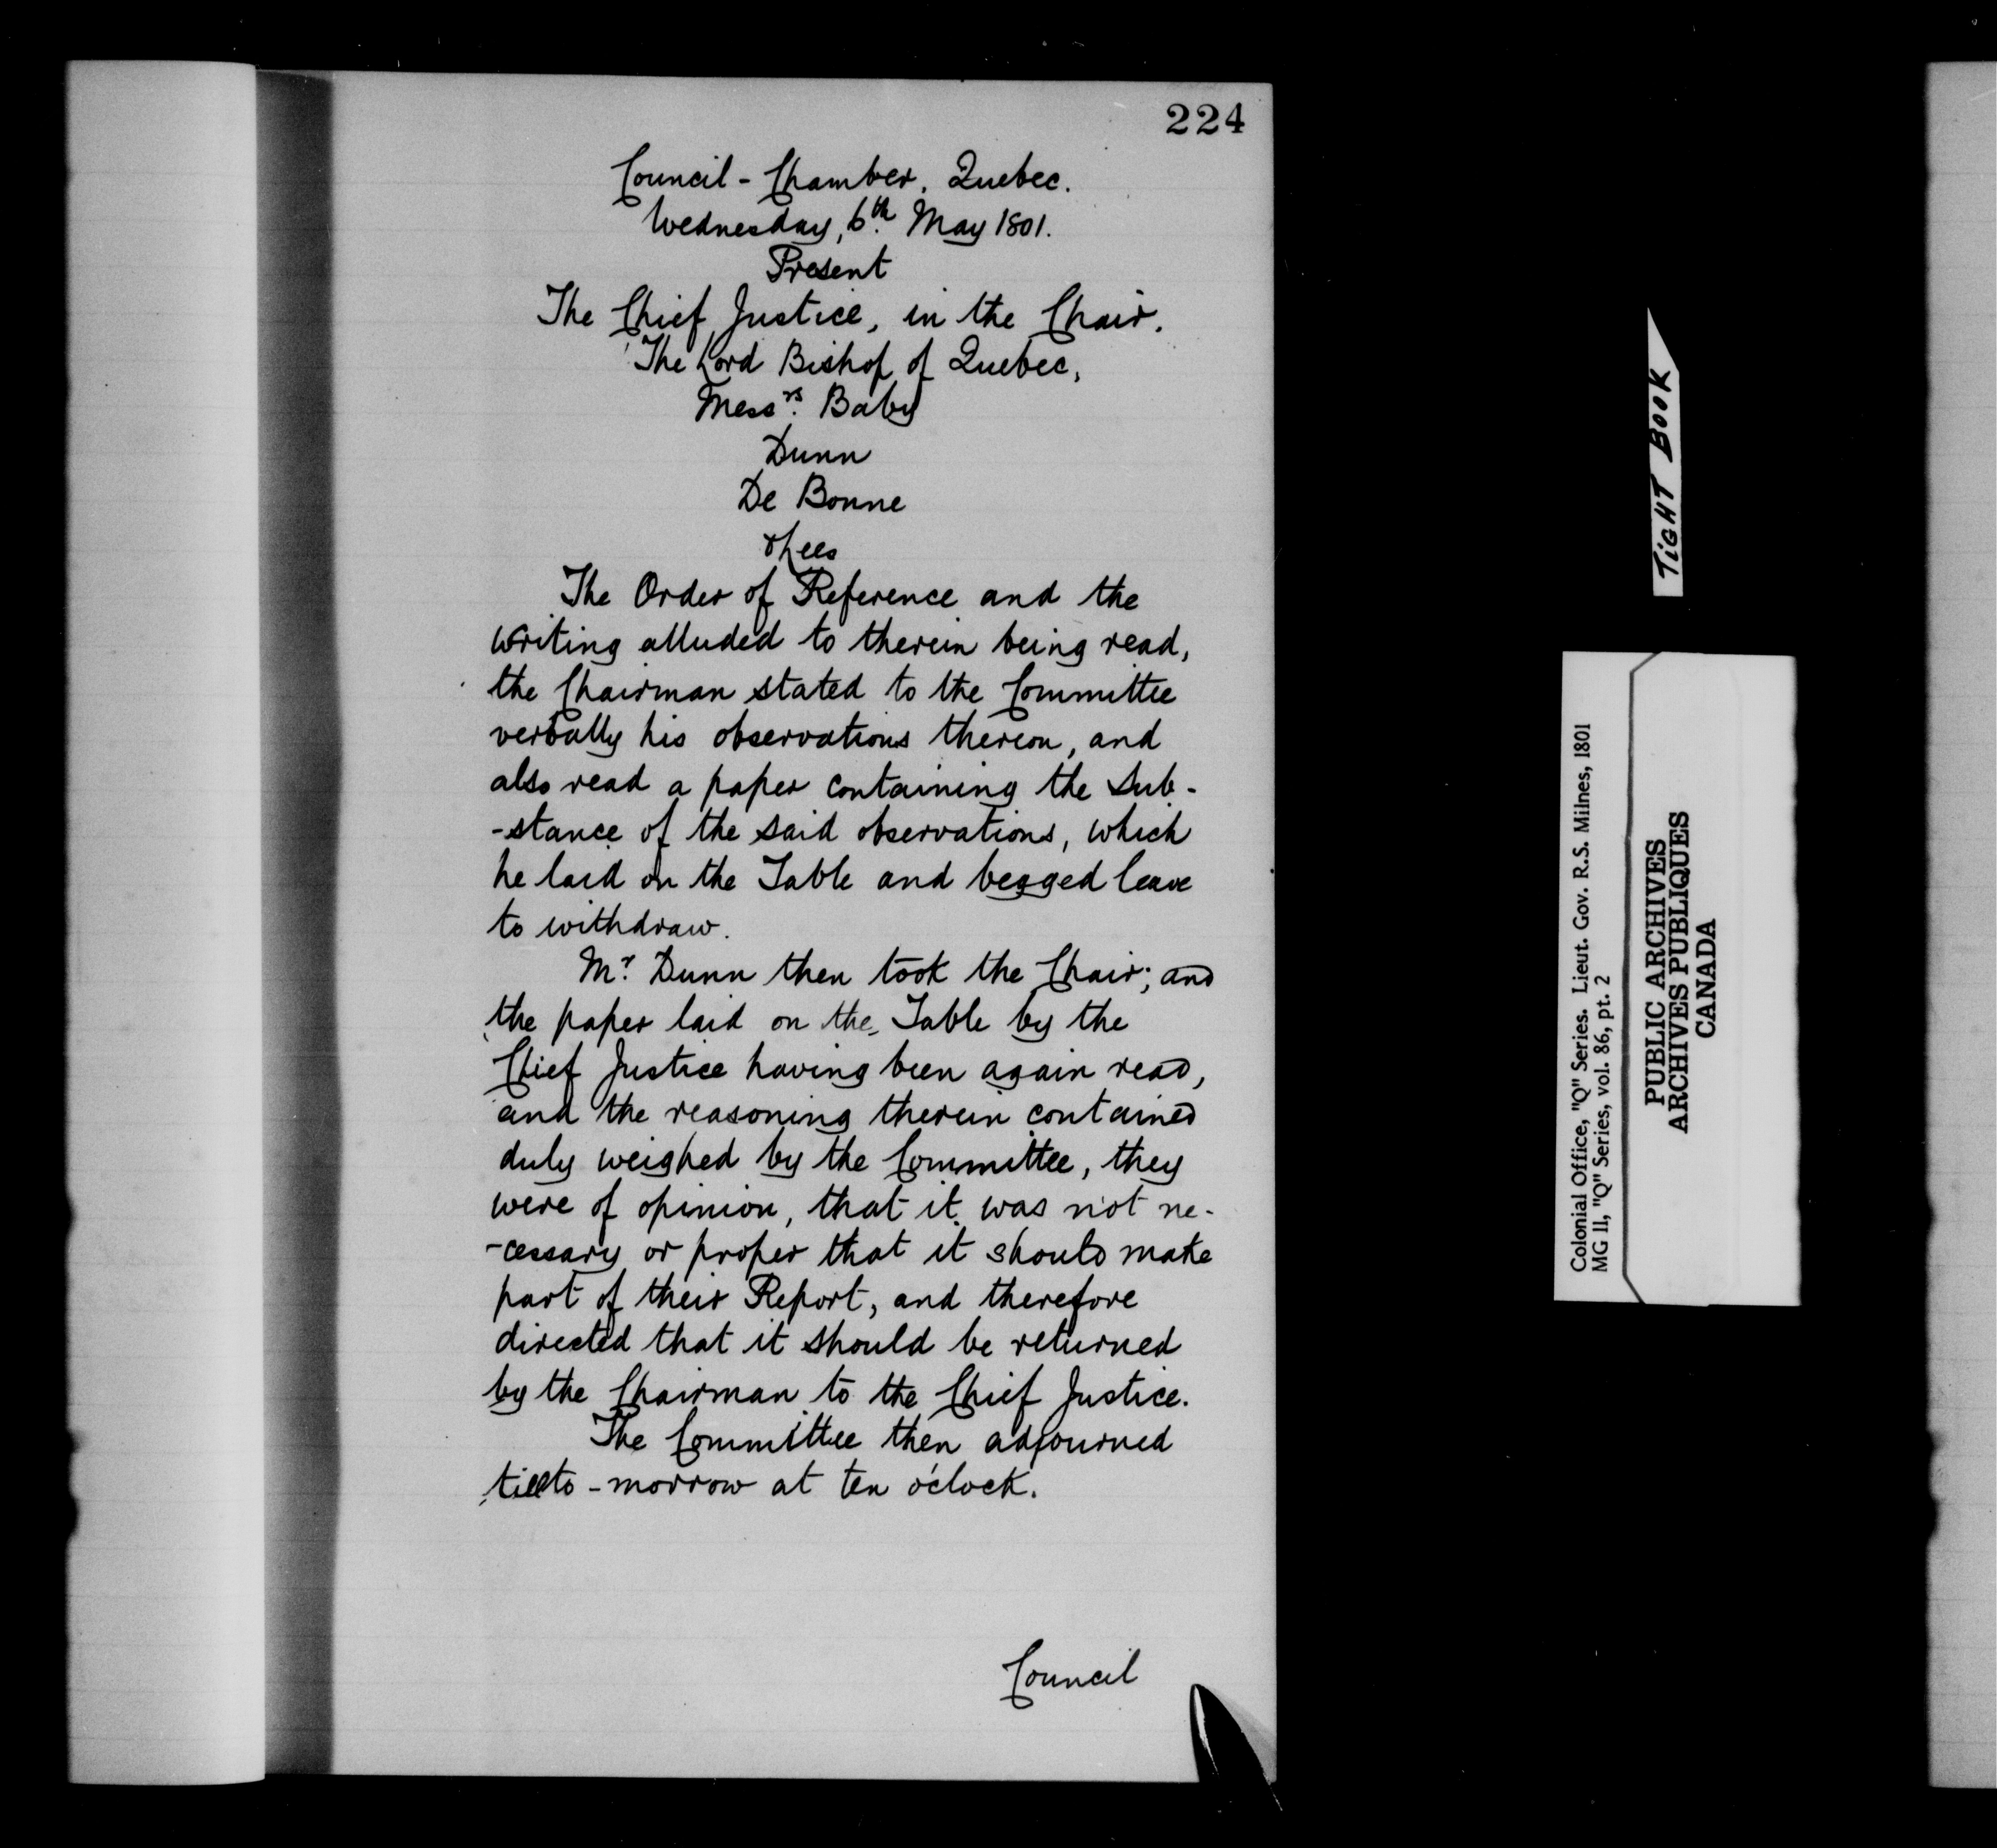 224
Council - Chamber, Quebec.
Wednesday, 6th. May 1801.
Present
The Chief Justice, in the Chair.
The Lord Bishop of Quebec,
Messrs. Baby
Dunn
De Bonne
& Lees
The Order of Reference and the
writing alluded to therein being read,
the Chairman stated to the Committee
verbally his observations thereon, and
also read a paper containing the Sub-
-stance of the said observations, which
he laid on the Table and begged leave
to withdraw.
Mr. Dunn then took the Chair; and
the paper laid on the Table by the
Chief Justice having been again read,
and the reasoning therein contained
duly weighed by the Committee, they
were of opinion, that it was not ne-
-cessary or proper that it should make
part of their Report, and therefore
directed that it should be returned
by the Chairman to the Chief Justice.
The Committee then adjourned
till to-morrow at ten o'clock.
Council
TIGHT BOOK
Colonial Office, "Q" Series. Lieut. Gov. R.S. Milnes, 1801
MG 11, "Q" Series, vol. 86, pt. 2
PUBLIC ARCHIVES
ARCHIVES PUBLIQUES
CANADA